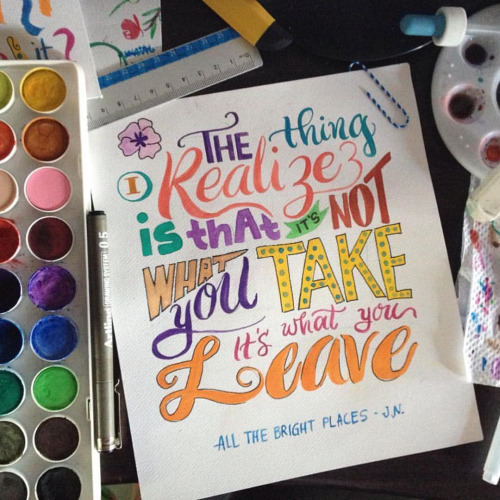 THE thing
I Realize
is that IT'S NOT
WHAT
you TAKE
It's what you
Leave
ALL THE BRIGHT PLACES - J.N.
0.5